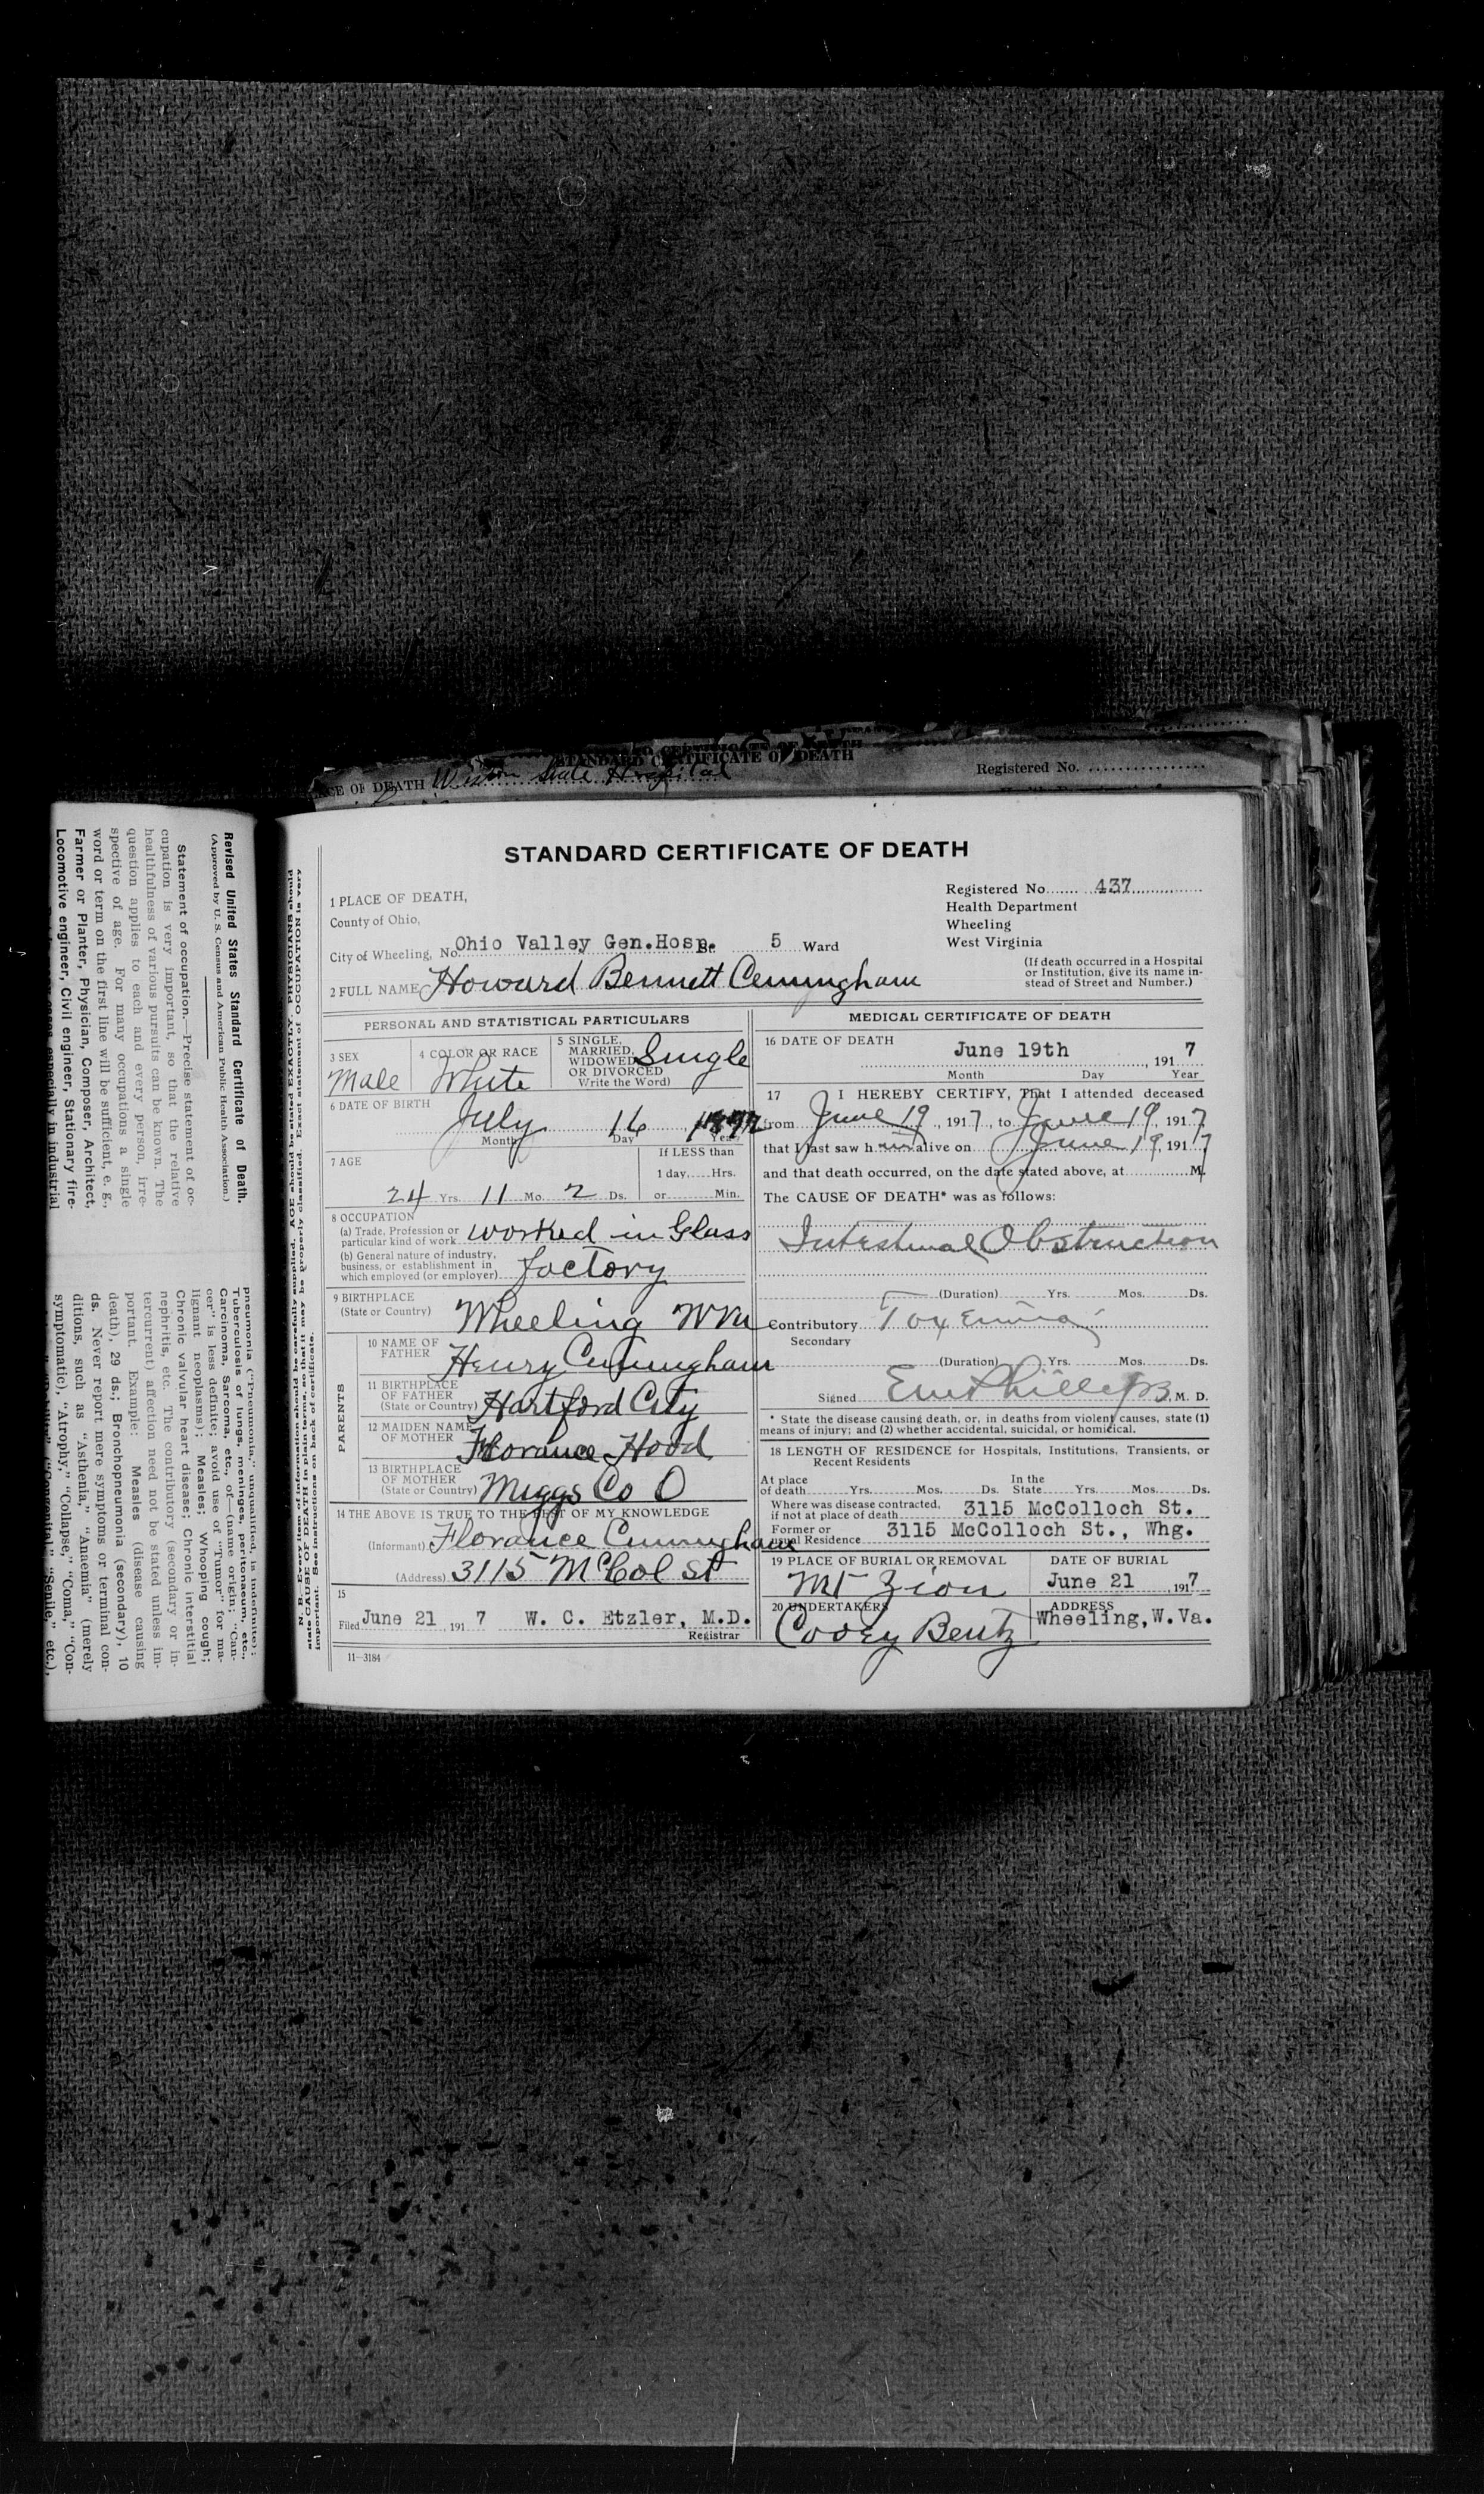 STANDARD CERTIFICATE OF DEATH
OF DEATH State Hospital
Registered No.
STANDARD CERTIFICATE OF DEATH
1 PLACE OF DEATH,
County of Ohio,
City of Wheeling, No. Ohio Valley Gen.Hosp. St. 5 Ward
Registered No. 437
Health Department
Wheeling
West Virginia
(If death occurred in a Hospital
or Institution, give its name in-
stead of Street and Number.)
2 FULL NAME Howard Bennett Cunningham
PERSONAL AND STATISTICAL PARTICULARS
3 SEX
Male
4 COLOR OR RACE
White
5 SINGLE,
MARRIED,
WIDOWED
OR DIVORCED
Write the Word)
Single
6 DATE OF BIRTH
July 16
Month Day Year
7 AGE
24 Yrs. 11 Mo. 2 Ds.
If LESS than
1 day,.....Hrs.
or........Min.
8 OCCUPATION
(a) Trade, Profession or
particular kind of work worked in Glass
(b) General nature of industry,
business, or establishment in
which employed (or employer) factory
9 BIRTHPLACE
(State or Country) Wheeling W Va
PARENTS
10 NAME OF
FATHER Henry Cunningham
11 BIRTHPLACE
OF FATHER
(State or Country) Hartford City
12 MAIDEN NAME
OF MOTHER Florance Hood
13 BIRTHPLACE
OF MOTHER
(State or Country) Miggs Co O
14 THE ABOVE IS TRUE TO THE BEST OF MY KNOWLEDGE
(Informant) Florance Cunningham
(Address) 3115 McCol St
15
Filed June 21, 191 7 W. C. Etzler, M.D.
Registrar
11-3184
MEDICAL CERTIFICATE OF DEATH
16 DATE OF DEATH
June 19th, 191 7
Month Day Year
17 I HEREBY CERTIFY, That I attended deceased
from June 19, 1917, to June 19, 1917,
that I last saw h im alive on June 19, 1917
and that death occurred, on the date stated above, at M.
The CAUSE OF DEATH* was as follows:
Intestinal Obstruction
(Duration) Yrs. Mos. Ds.
Contributory Toxemia
Secondary
(Duration) Yrs. Mos. Ds.
Signed Phillips, M. D.
* State the disease causing death, or, in deaths from violent causes, state (1)
means of injury; and (2) whether accidental, suicidal, or homicical.
18 LENGTH OF RESIDENCE for Hospitals, Institutions, Transients, or
Recent Residents
At place
of death Yrs. Mos. Ds.
In the
State Yrs. Mos. Ds.
Where was disease contracted,
if not at place of death 3115 McColloch St.
Former or
usual Residence 3115 McColloch St., Whg.
19 PLACE OF BURIAL OR REMOVAL
Mt Zion
DATE OF BURIAL
June 21, 1917
20 UNDERTAKERS
Cooey Bentz
ADDRESS
Wheeling, W. Va.
N. B.—Every item of information should be carefully supplied. AGE should be stated EXACTLY. PHYSICIANS should
state CAUSE OF DEATH in plain terms, so that it may be properly classified. Exact statement of OCCUPATION is very
important. See instructions on back of certificate.
Revised United States Standard Certificate of Death.
(Approved by U. S. Census and American Public Health Association.)
Statement of occupation.—Precise statement of oc-
cupation is very important, so that the relative
healthfulness of various pursuits can be known. The
question applies to each and every person, irre-
spective of age. For many occupations a single
word or term on the first line will be sufficient, e. g.,
Farmer or Planter, Physician, Composer, Architect,
Locomotive engineer, Civil engineer, Stationary fire-
especially in industrial
pneumonia ("Pneumonia," unqualified, is indefinite);
Tuberculosis of lungs, meninges, peritonaeum, etc.,
Carcinoma, Sarcoma, etc., of—(name origin; "Can-
cer" is less definite; avoid use of "Tumor" for ma-
lignant neoplasms); Measles; Whooping cough;
Chronic valvular heart disease; Chronic interstitial
nephritis, etc. The contributory (secondary or in-
tercurrent) affection need not be stated unless im-
portant. Example: Measles (disease causing
death), 29 ds.; Bronchopneumonia (secondary), 10
ds. Never report mere symptoms or terminal con-
ditions, such as "Asthenia," "Anaemia" (merely
symptomatic), "Atrophy," "Collapse," "Coma," "Con-
"Senile," etc.),